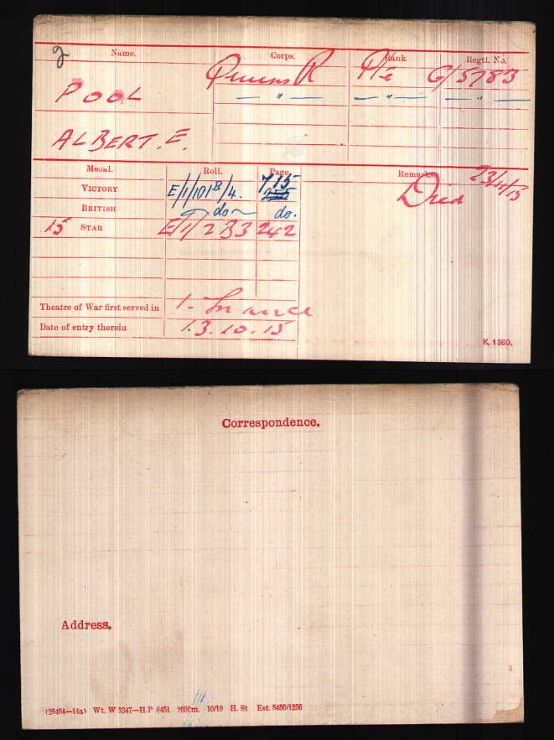 Name. Corps. Rank Regtl. No.
POOL Queens R Pte G/5783
— " — — " — — " —
ALBERT. E.
Medal. Roll. Page. Remarks.
VICTORY E/1/101B/4. 715 Died 23/11/15
BRITISH do do.
15 STAR E/1/2B3 242
Theatre of War first served in 1. France
Date of entry therein 13.10.15
K. 1380.
Correspondence.
Address.
(26454—14a) Wt. W 3347—H.P 6451 2000m. 10/19 H. St Est. 5450/1256